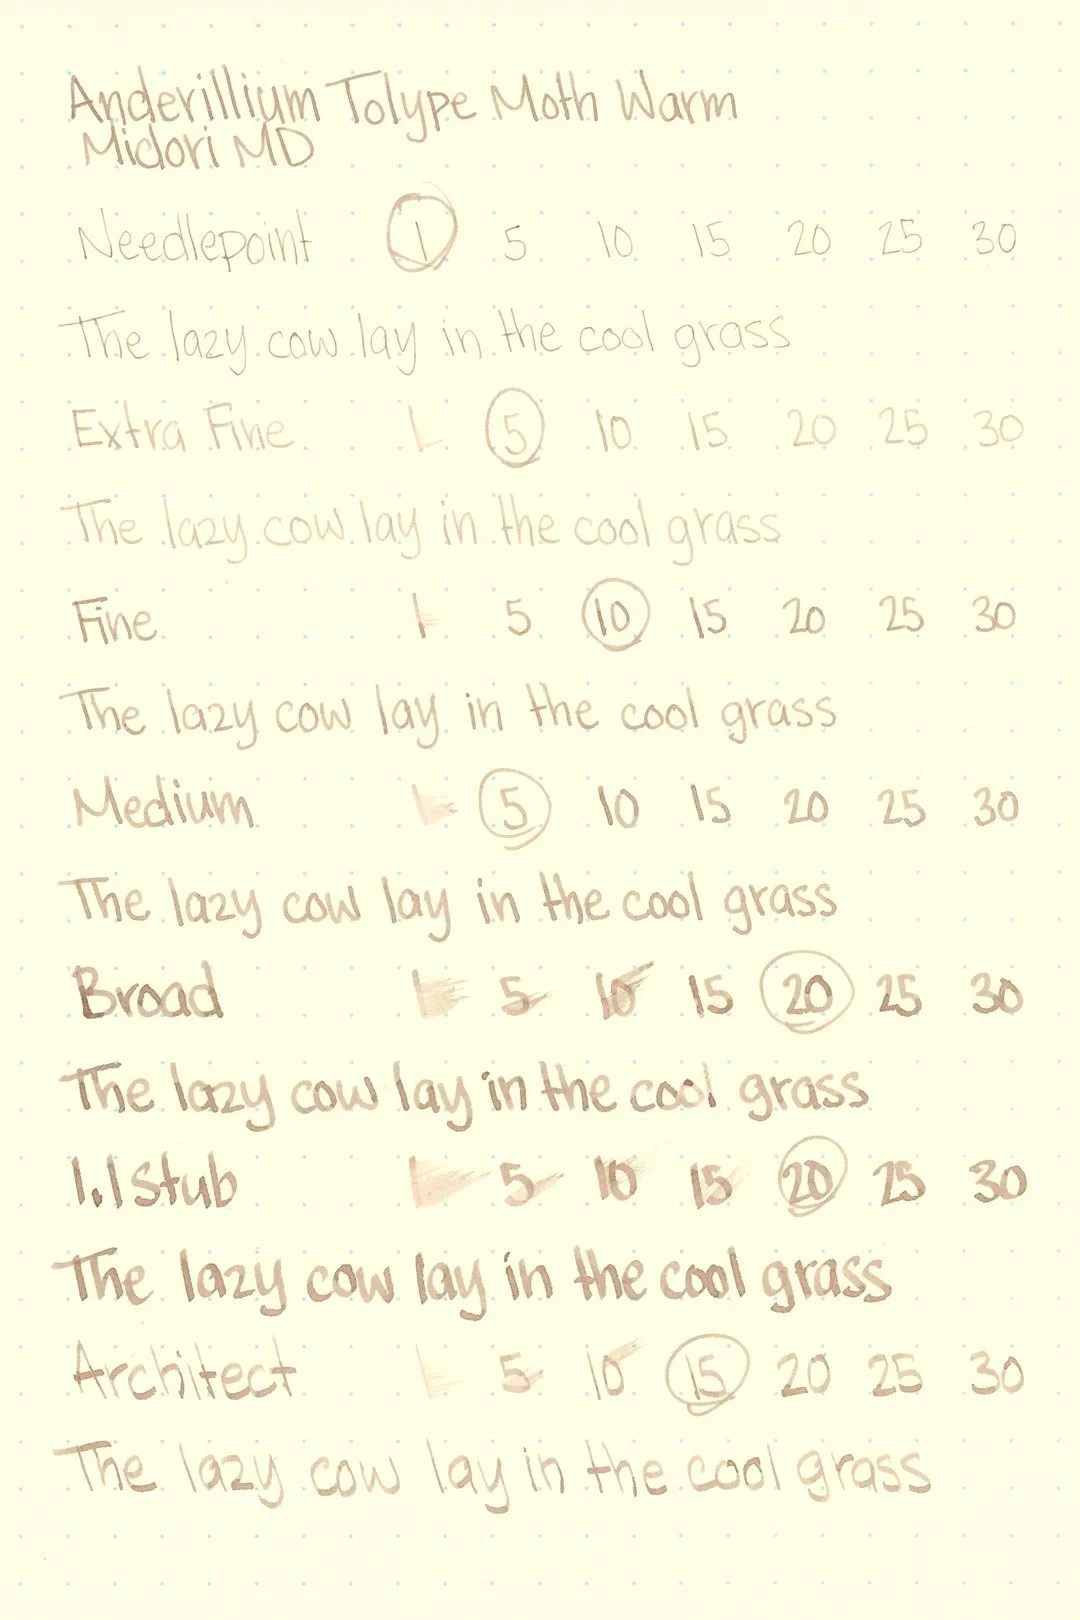 Anderillium Tolype Moth Warm
Midori MD
Needlepoint 1 5 10 15 20 25 30
The lazy cow lay in the cool grass
Extra Fine 1 5 10 15 20 25 30
The lazy cow lay in the cool grass
Fine 1 5 10 15 20 25 30
The lazy cow lay in the cool grass
Medium 1 5 10 15 20 25 30
The lazy cow lay in the cool grass
Broad 1 5 10 15 20 25 30
The lazy cow lay in the cool grass
1.1 Stub 1 5 10 15 20 25 30
The lazy cow lay in the cool grass
Architect 1 5 10 15 20 25 30
The lazy cow lay in the cool grass